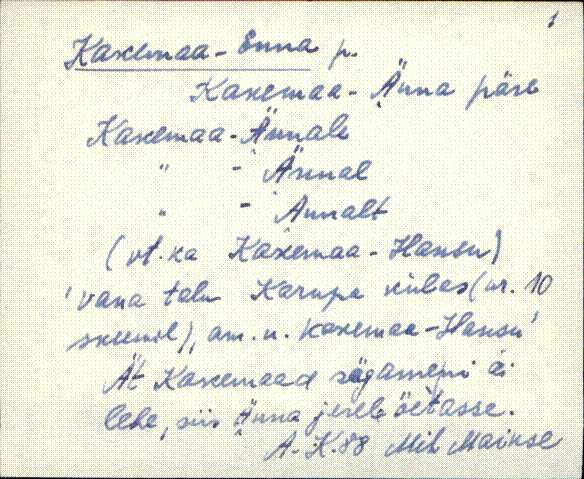 1
Kaxemaa-Enna p.
Kaxemaa-Änna päre
Kaxemaa-Ännale
" - Ännal
" - Annalt
(vt. ka Kaxemaa-Hansu)
'vana talu Karupa külas (nr. 10
skeemil), am. n. Kaxemaa-Hansu'
Ät Kaxemaad äi
lehe, siis Änna jerele öetasse.
A.K. 88 Mih Mainse